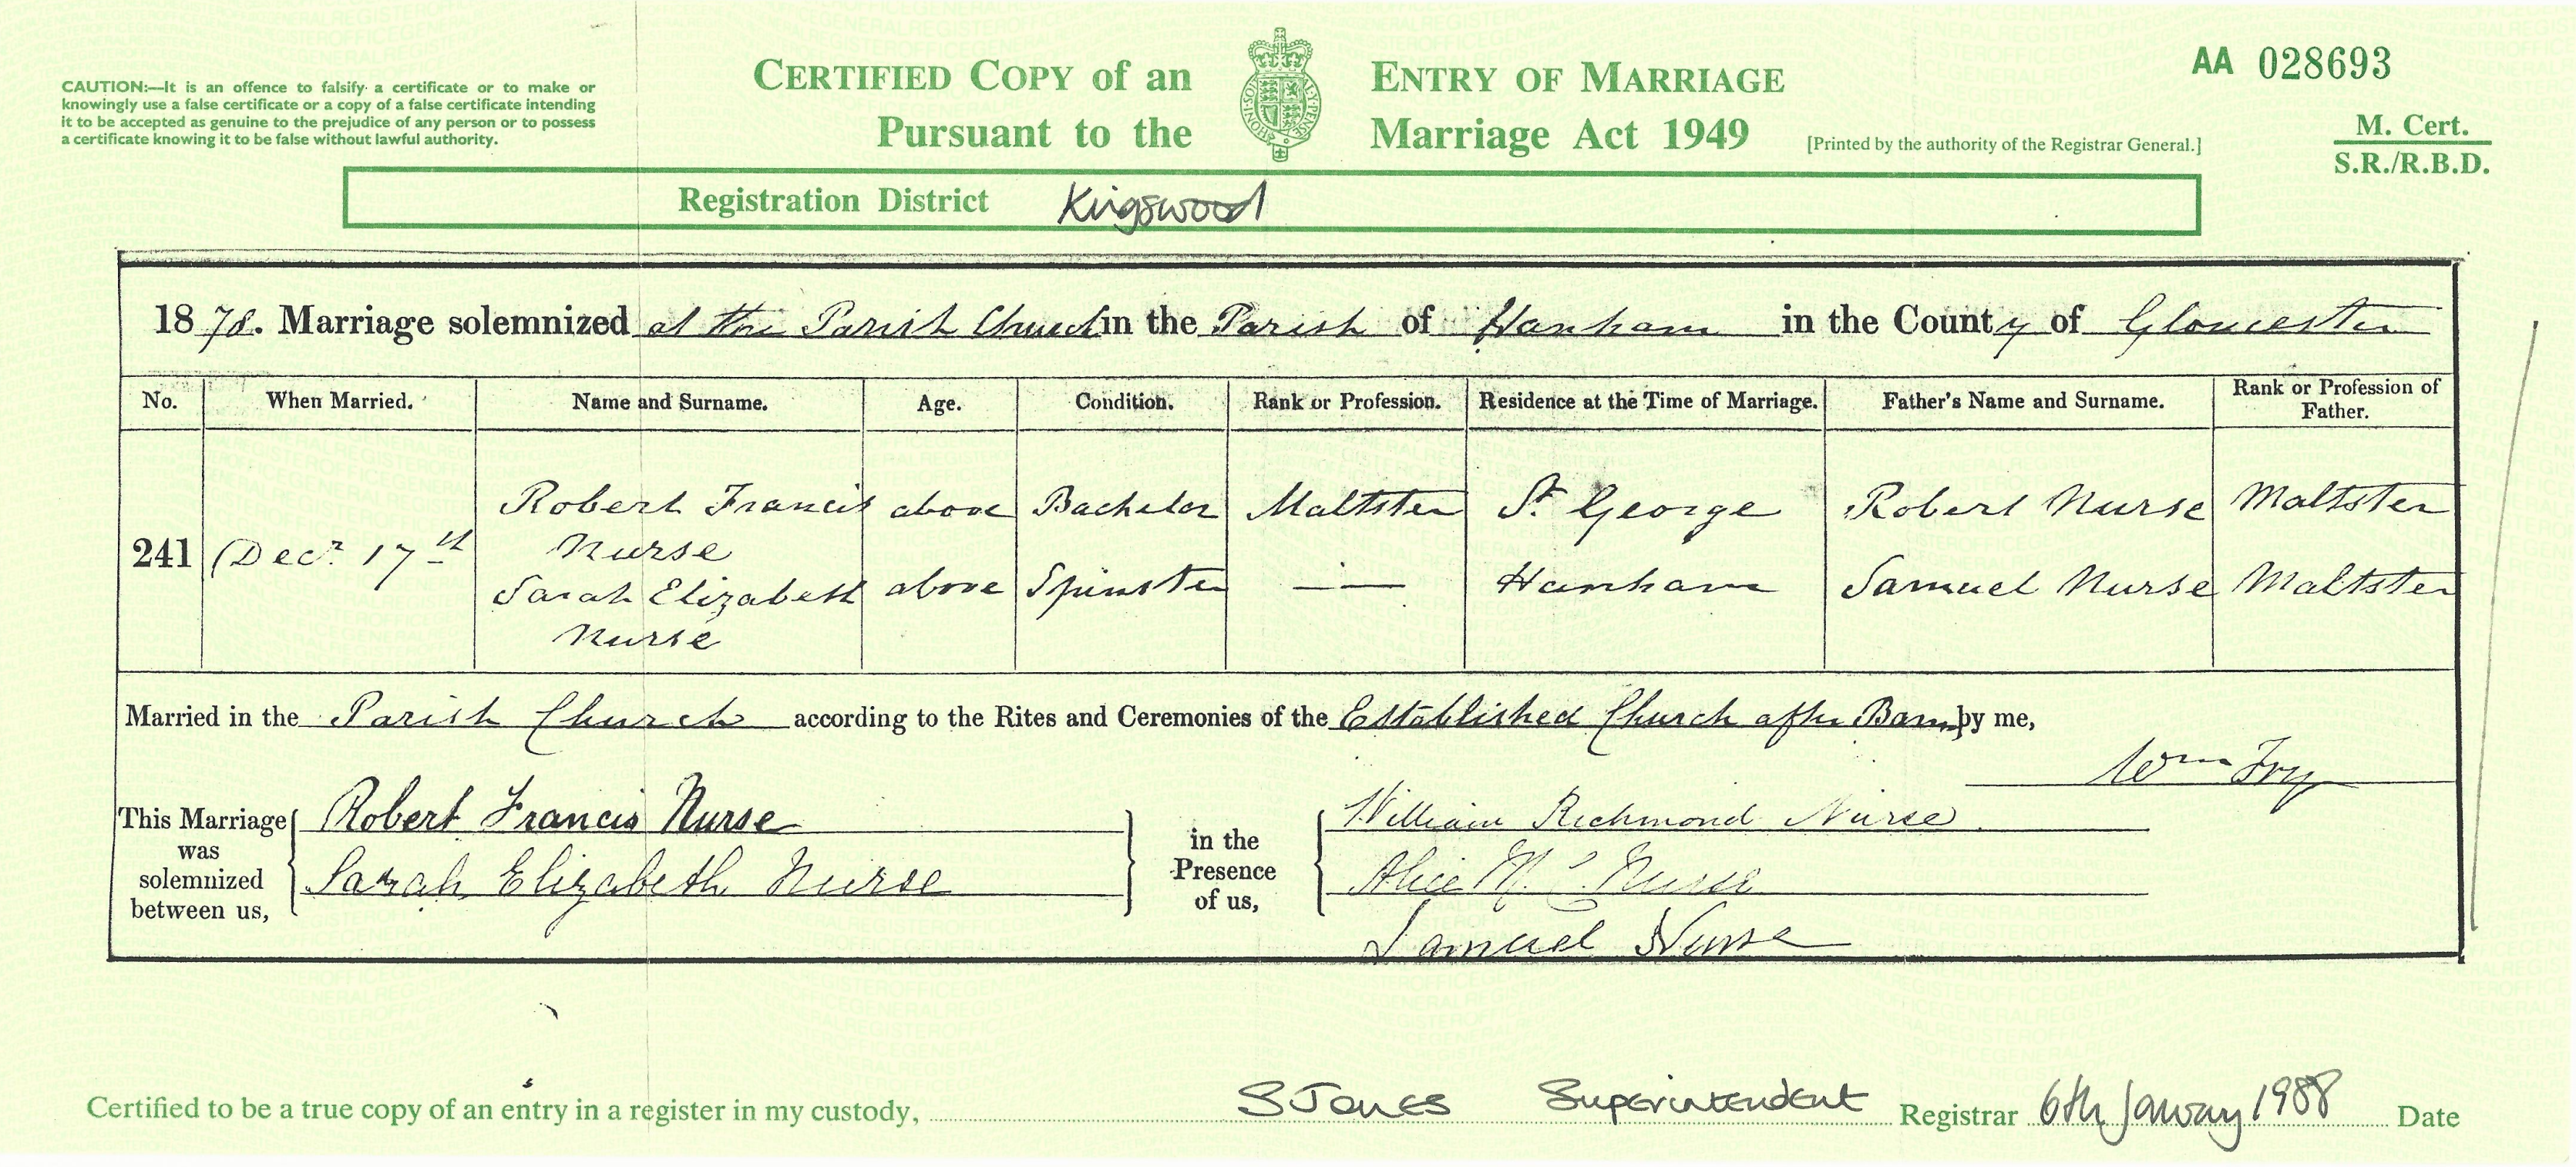 CAUTION:—It is an offence to falsify a certificate or to make or
knowingly use a false certificate or a copy of a false certificate intending
it to be accepted as genuine to the prejudice of any person or to possess
a certificate knowing it to be false without lawful authority.
CERTIFIED COPY of an ENTRY OF MARRIAGE
Pursuant to the Marriage Act 1949
[Printed by the authority of the Registrar General.]
AA 028693
M. Cert.
S.R./R.B.D.
Registration District Kingswood
1878. Marriage solemnized at the Parish Church in the Parish of Hanham in the County of Gloucester
No. When Married. Name and Surname. Age. Condition. Rank or Profession. Residence at the Time of Marriage. Father's Name and Surname. Rank or Profession of Father.
241 Decr 17th
Robert Francis Nurse above Bachelor Maltster St George Robert Nurse Maltster
Sarah Elizabeth Nurse above Spinster — Hanham Samuel Nurse Maltster
Married in the Parish Church according to the Rites and Ceremonies of the Established Church after Banns by me,
Wm Fry
This Marriage was solemnized between us,
Robert Francis Nurse
Sarah Elizabeth Nurse
in the Presence of us,
William Richmond Nurse
Alice Nurse
Samuel Nurse
Certified to be a true copy of an entry in a register in my custody, S Jones Superintendent Registrar 6th January 1988 Date